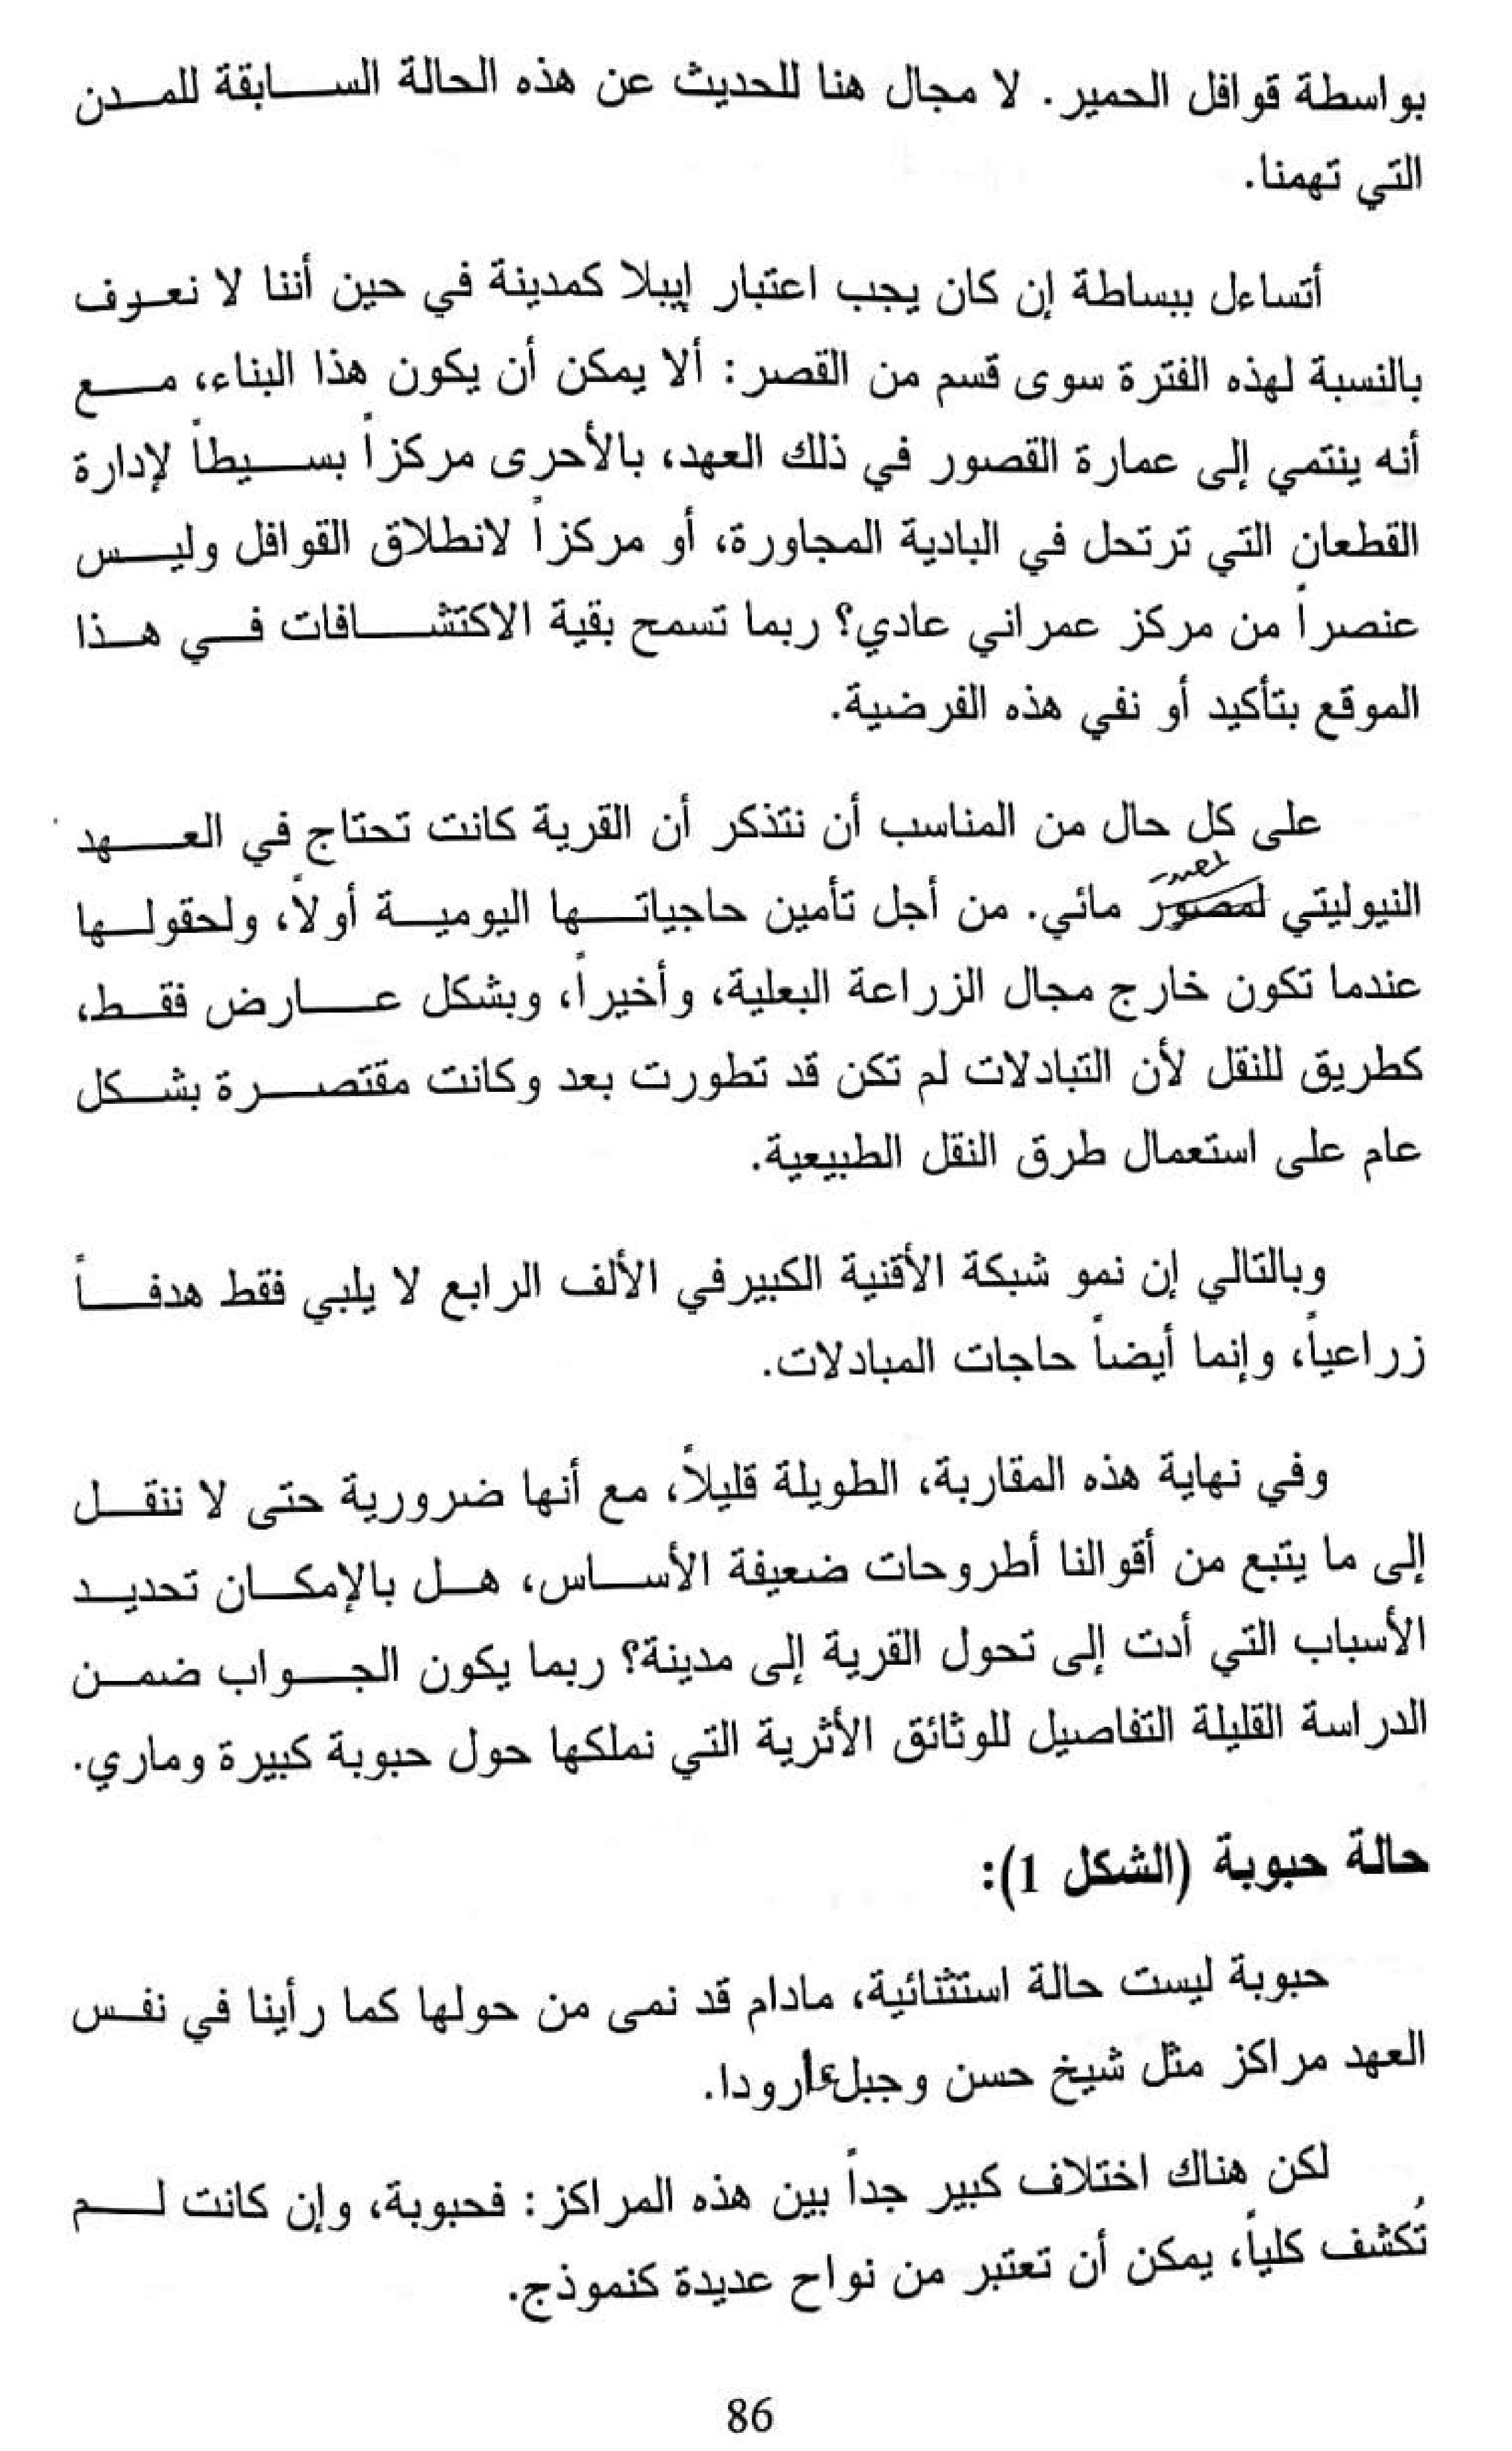 بواسطة قوافل الحمير. لا مجال هنا للحديث عن هذه الحالة السابقة للمدن
التي تهمنا.
أتساءل ببساطة إن كان يجب اعتبار إيبلا كمدينة في حين أننا لا نعرف
بالنسبة لهذه الفترة سوى قسم من القصر: ألا يمكن أن يكون هذا البناء، مع
أنه ينتمي إلى عمارة القصور في ذلك العهد، بالأحرى مركزاً بسيطاً لإدارة
القطعان التي ترتحل في البادية المجاورة، أو مركزاً لانطلاق القوافل وليس
عنصراً من مركز عمراني عادي؟ ربما تسمح بقية الاكتشافات في هذا
الموقع بتأكيد أو نفي هذه الفرضية.
على كل حال من المناسب أن نتذكر أن القرية كانت تحتاج في العهد
لمصدر
النيوليتي لمصور مائي. من أجل تأمين حاجياتها اليومية أولاً، ولحقولها
عندما تكون خارج مجال الزراعة البعلية، وأخيراً، وبشكل عارض فقط،
كطريق للنقل لأن التبادلات لم تكن قد تطورت بعد وكانت مقتصرة بشكل
عام على استعمال طرق النقل الطبيعية.
وبالتالي إن نمو شبكة الأقنية الكبيرفي الألف الرابع لا يلبي فقط هدفاً
زراعياً، وإنما أيضاً حاجات المبادلات.
وفي نهاية هذه المقاربة، الطويلة قليلاً، مع أنها ضرورية حتى لا ننقل
إلى ما يتبع من أقوالنا أطروحات ضعيفة الأساس، هل بالإمكان تحديد
الأسباب التي أدت إلى تحول القرية إلى مدينة؟ ربما يكون الجواب ضمن
الدراسة القليلة التفاصيل للوثائق الأثرية التي نملكها حول حبوبة كبيرة وماري.
حالة حبوبة (الشكل 1):
حبوبة ليست حالة استثنائية، مادام قد نمى من حولها كما رأينا في نفس
العهد مراكز مثل شيخ حسن وجبل عارودا.
لكن هناك اختلاف كبير جداً بين هذه المراكز: فحبوبة، وإن كانت لم
تُكشف كلياً، يمكن أن تعتبر من نواح عديدة كنموذج.
86